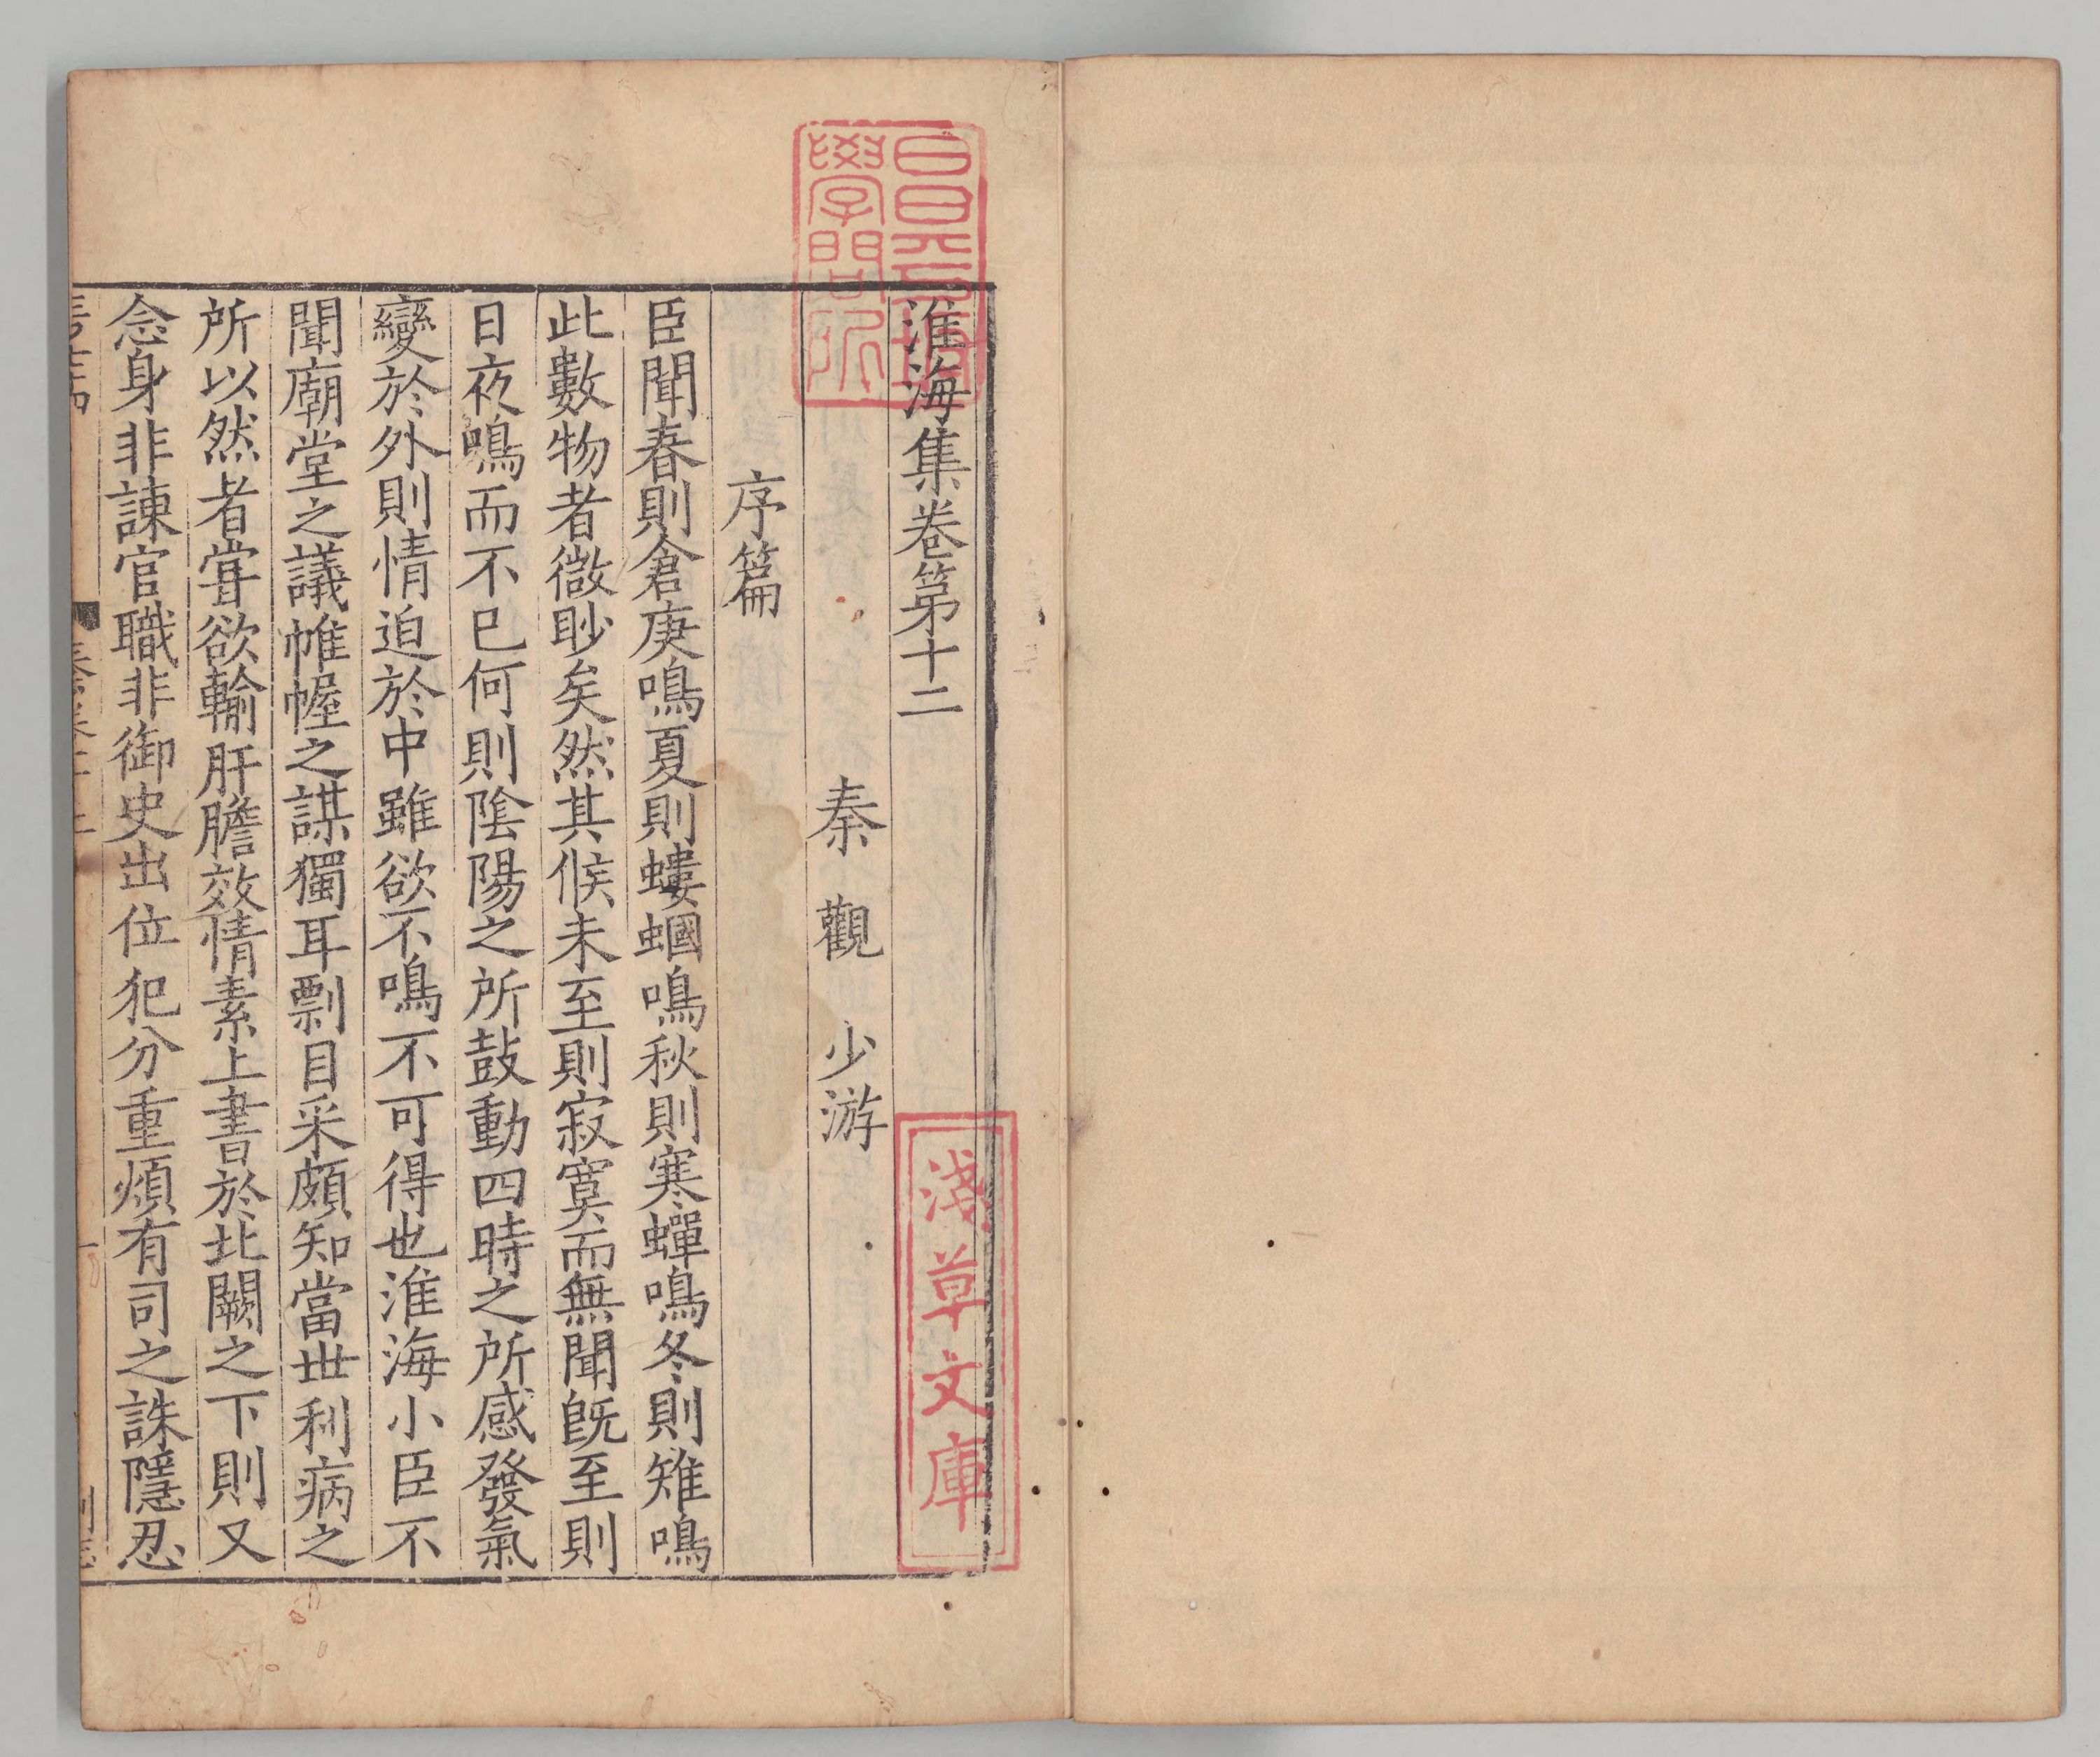 淮海集卷第十二
秦觀少游
序篇
臣聞春則倉庚鳴夏則螻蟈鳴秋則寒蟬鳴冬則雉鳴
此數物者微眇矣然其候未至則寂寞而無聞旣至則
日夜鳴而不已何則隂陽之所鼓動四時之所感發氣
變於外則情迫於中雖欲不鳴不可得也淮海小臣不
聞廟堂之議帷幄之謀獨耳剽目采頗知當世利病之
所以然者甞欲輸肝膽效情素上書於北闕之下則又
念身非諫官職非御史出位犯分重煩有司之誅隱忍
昌平坂
學問所
淺草文庫